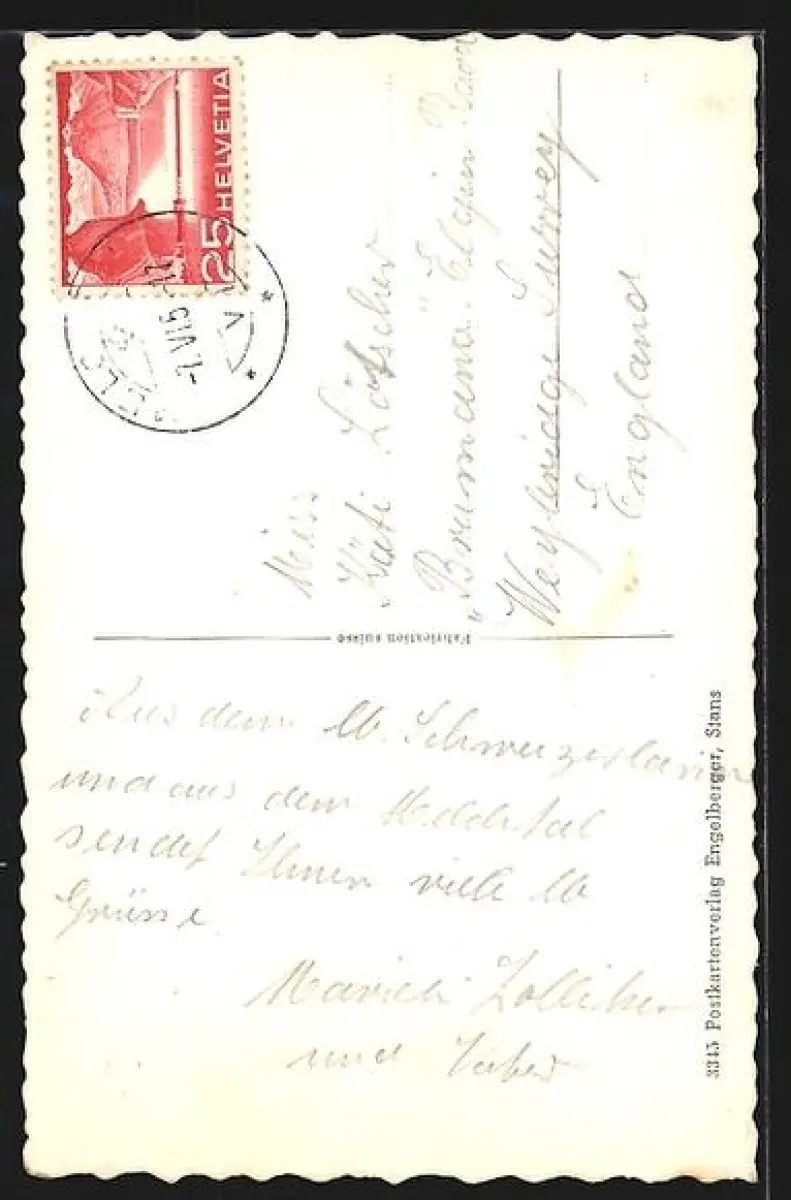 HELVETIA
25
Miss
Käti Lötscher
"Brumana" Elgin Road
Weybridge Surrey
England
Fabrication suisse
Aus dem lb. Schweizerland
und aus dem Melchtal
sendet Ihnen viele lb
Grüsse
Marieli
und
3345 Postkartenverlag Engelberger, Stans